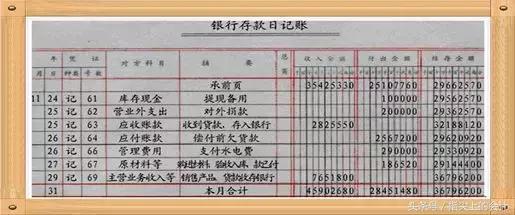 银行存款日记账
年 凭 证 对方科目 摘 要 收入金额 付出金额 结存金额
月 日 种类 号数
承前页 35425330 25107760 29662570
11 24 记 61 库存现金 提现备用 100000 29562570
25 记 62 营业外支出 对外捐款 200000 29362570
25 记 63 应收账款 收到贷款、存入银行 2825550 32188120
26 记 64 应付账款 偿付前欠货款 2567200 29620920
26 记 66 管理费用 支付水电费 290000 29330920
27 记 67 原材料等 购进材料、验收入库、款已付 186520 29144400
29 记 69 主营业务收入等 销售产品、货款收存银行 7651800 36796200
31 本月合计 45902680 28451480 36796200
头条号 / 指尖上的会计